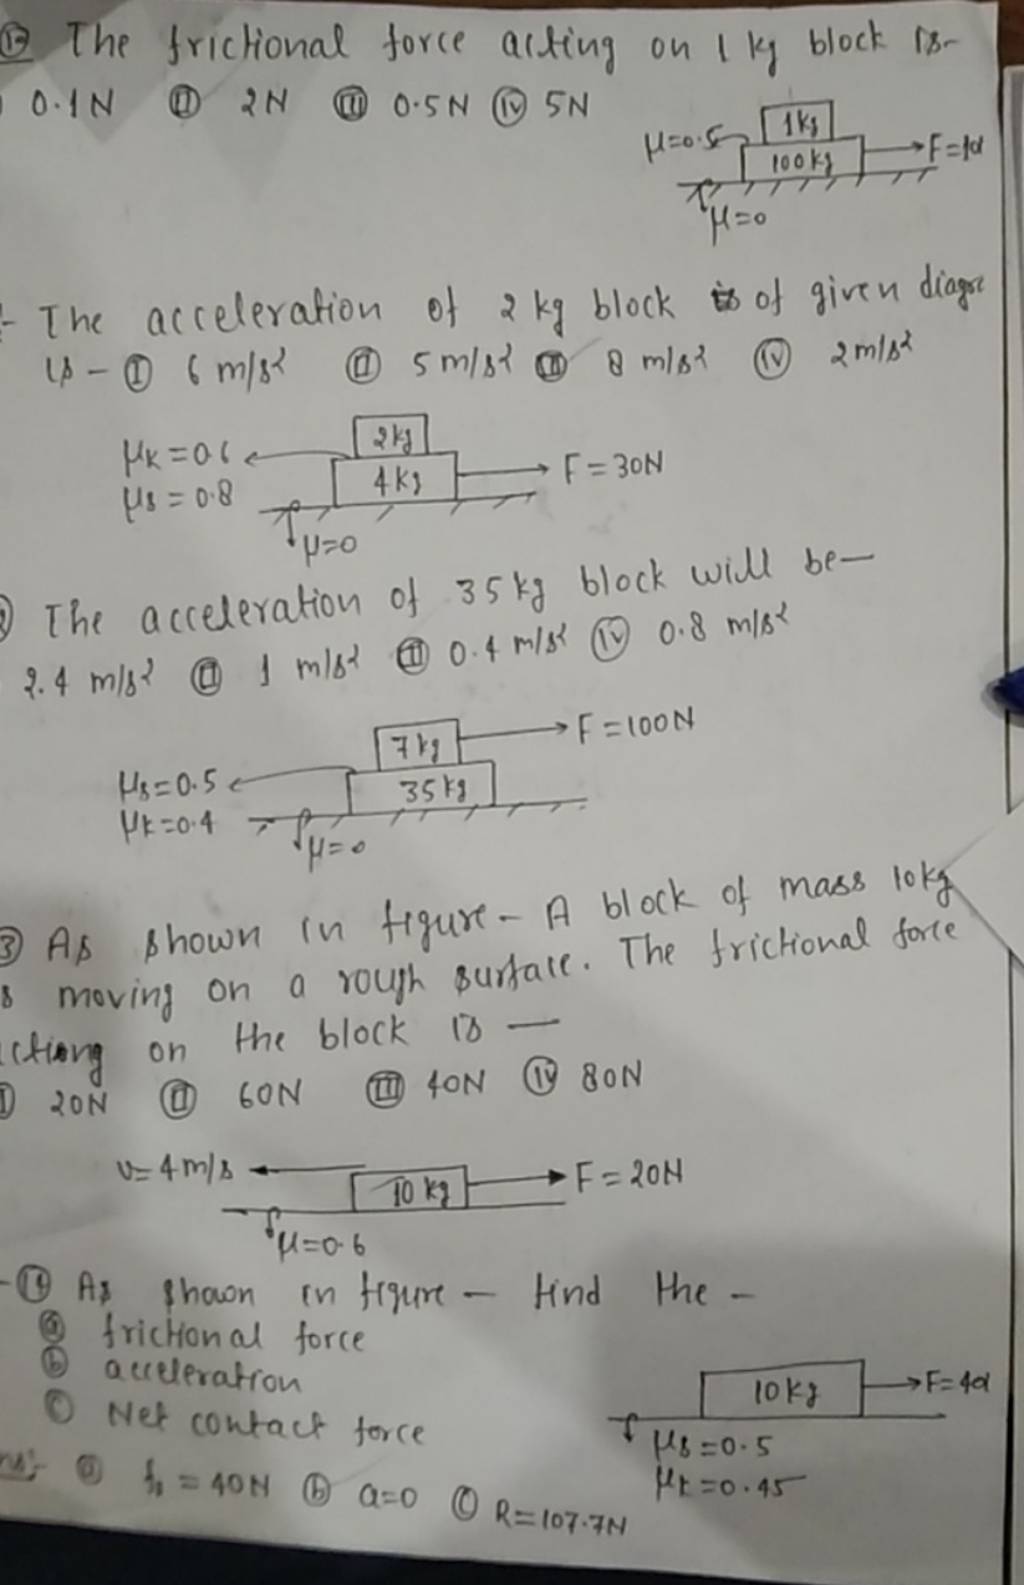 The frictional force acting on 1 kg block is-
0.1N (II) 2N (III) 0.5N (IV) 5N
1kg
μ=0.5
100kg
μ=0
The acceleration of 2 kg block of given
is - (I) 6 m/s² (II) 5 m/s² (III) 8 m/s² (IV) 2m/s²
2kg
μk = 0.6
4kg
F = 30N
μs = 0.8
μ=0
The acceleration of 35 kg block will be-
2.4 m/s² (II) 1 m/s² (III) 0.4 m/s² (IV) 0.8 m/s²
7kg
F = 100N
μs=0.5
35kg
μk=0.4
μ=0
As shown in figure - A block of mass 10kg
moving on a rough surface. The frictional force
on the block is -
20N (II) 60N (III) 40N (IV) 80N
v= 4m/s
10 kg
F = 20N
μ=0.6
As shown in figure - find the -
(a) frictional force
(b) acceleration
(c) Net contact force
10kg
μs=0.5
μk=0.45
(a) fs = 40N (b) a=0 (c) R=107.7N